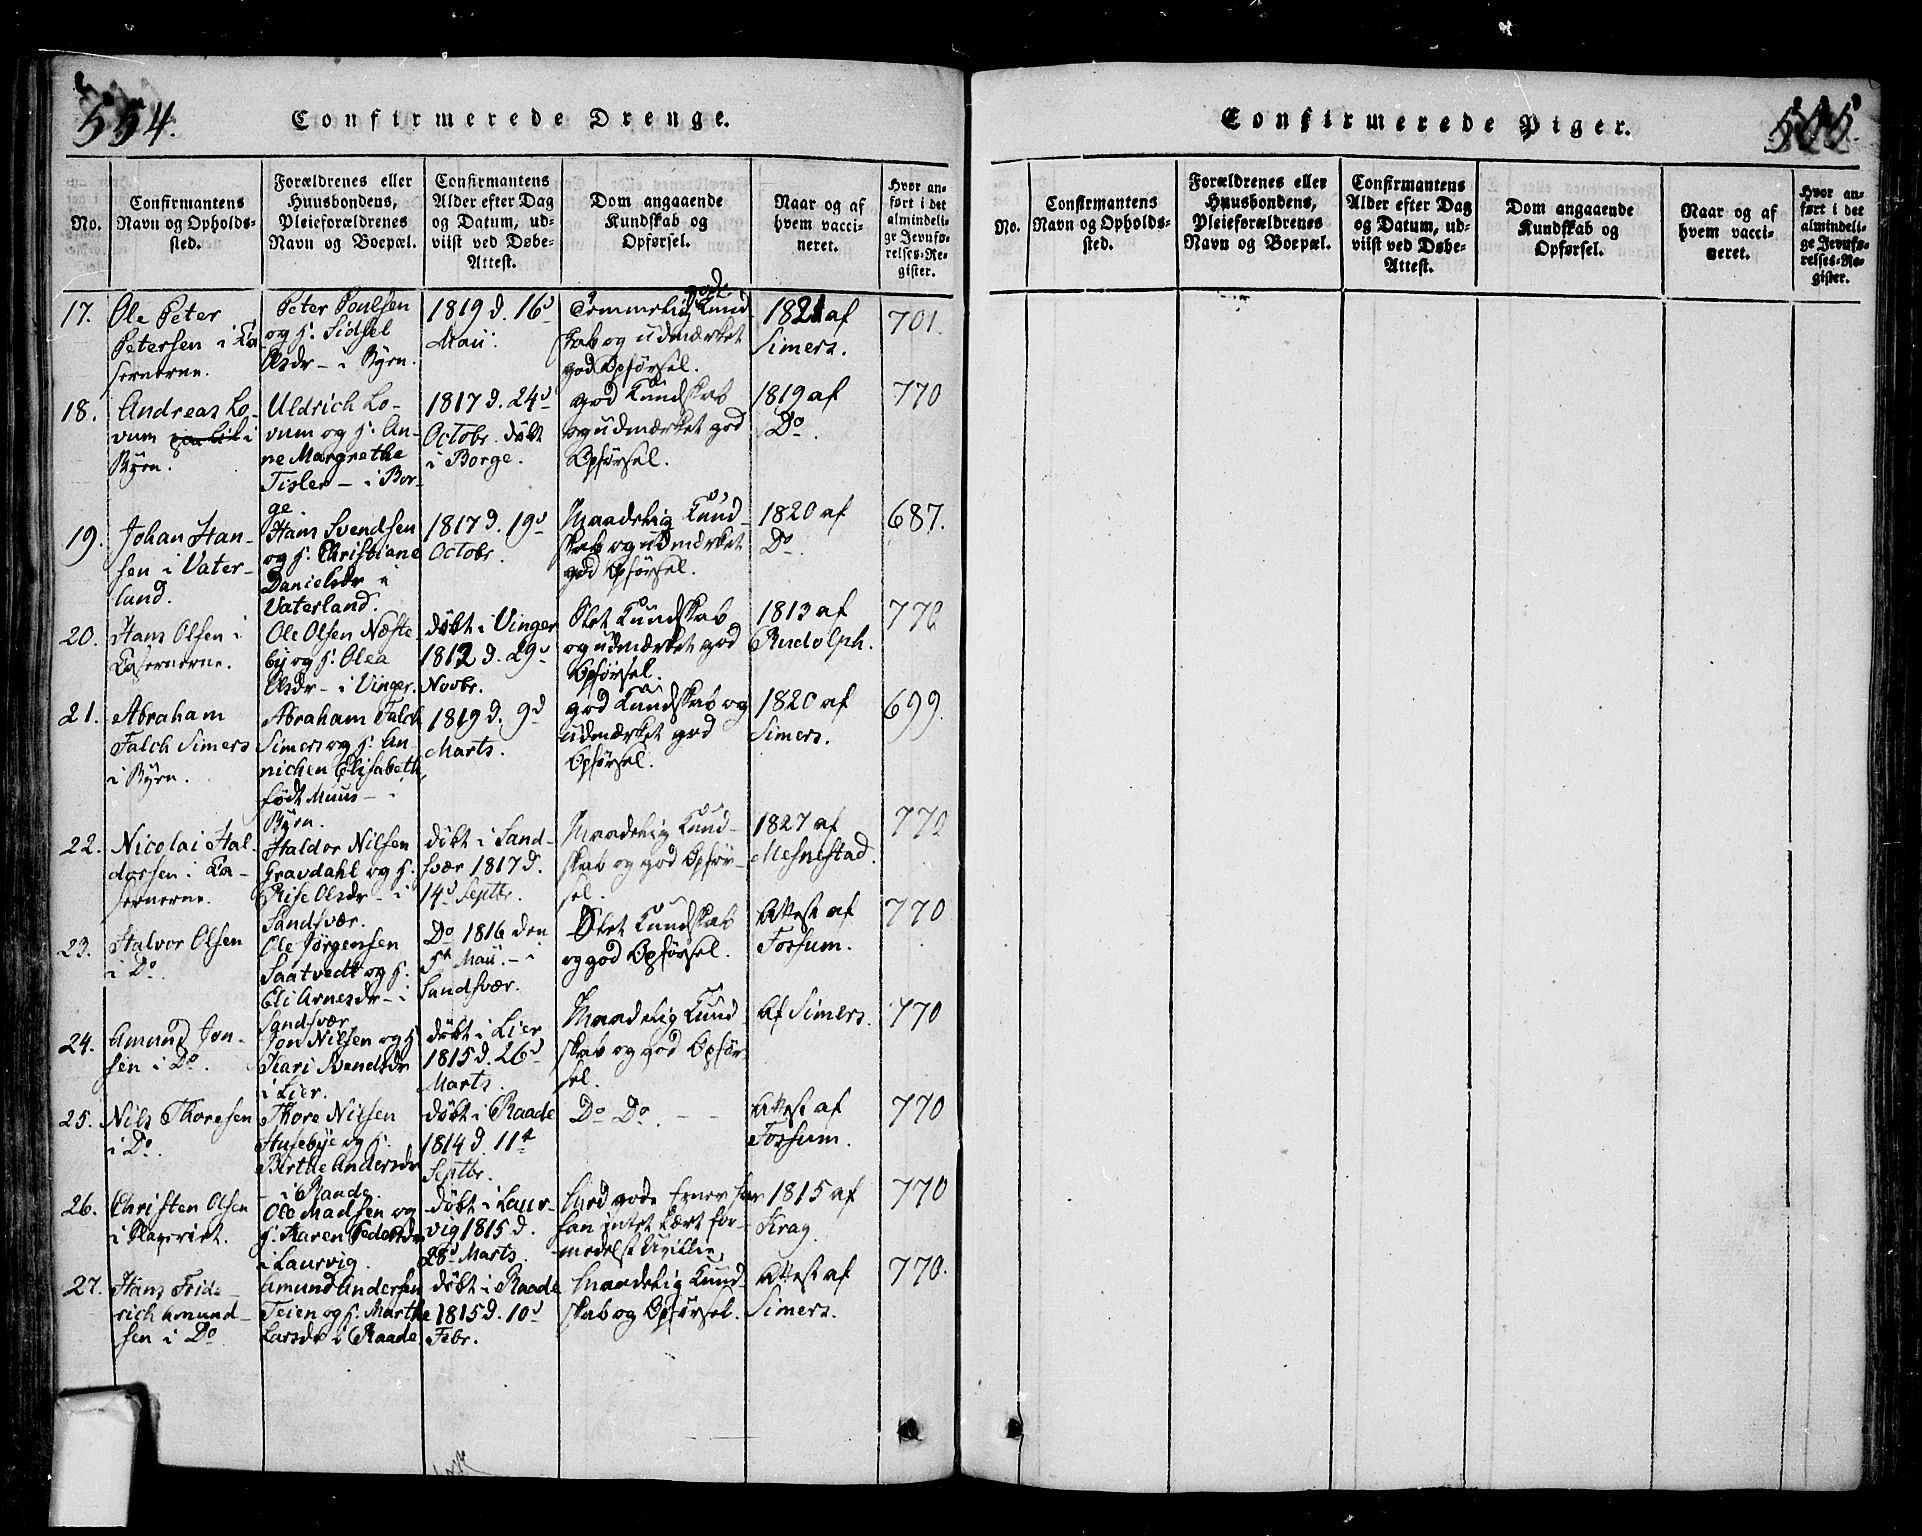 554.
Confirmerede Drenge.
No.
Confirmantens
Navn og Opholds-
sted.
Forældrenes eller
Huusbondens,
Pleieforældrenes
Navn og Boepæl.
Confirmantens
Alder efter Dag
og Datum, ud-
viist ved Døbe-
Attest.
Dom angaaende
Kundskab og
Opførsel.
Naar og af
hvem vacci-
neret.
Hvor an-
ført i det
almindeli-
ge Jevnfø-
relses-Re-
gister.
17.
Ole Peter
Petersen i Ca-
sernerne.
Peter Poulsen
og h. Sidsel
Olsdr - i Byen.
1819 d. 16d
Maii.
Temmelig gode Kund-
skab og udmærket
god Opførsel.
1821 af
Simers.
701.
18.
Andreas Lo-
vum i
Byen.
Uldrich Lo-
vum og h. An-
ne Margrethe
Tisler - i Bor-
ge.
1817 d. 24d
Octobr. døbt
i Borge.
god Kundskab
og udmærket god
Opførsel.
1819 af
Do.
770
19.
Johan Han-
sen i Vater-
land.
Hans Svendsen
og h. Christiane
Danielsdr i
Vaterland.
1817 d. 19d
Octobr.
Maadelig Kund-
skab og udmærket
god Opførsel.
1820 af
Do.
687.
20.
Hans Olsen i
Casernerne.
Ole Olsen Næste
by og h. Olea
Olsdr - i Vinger.
døbt i Vinger
1812 d. 29d
Novbr.
Slet Kundskab
og udmærket god
Opførsel.
1813 af
Rudolph.
770
21.
Abraham
Falch Simers
i Byen.
Abraham Falch
Simers og h. An-
nichen Elisabeth
født Muus - i
Byen.
1819 d. 9d
Marts.
god Kundskab og
udmærket god
Opførsel.
1820 af
Simers.
699.
22.
Nicolai Hal-
dorsen i Ca-
sernerne.
Haldor Nilsen
Gravdahl og h.
Rise Olsdr - i
Sandsvær.
døbt i Sand-
svær 1817 d.
14d Septbr.
Maadelig Kund-
skab og god Opfør-
sel.
1827 af
Mesnestad.
770
23.
Halvor Olsen
i Do.
Ole Jørgensen
Saatvedt og h.
Eli Arnesdr - i
Sandsvær
Do 1816 den
5t Maii. - i
Sandsvær.
Slet Kundskab
og god Opførsel.
Attest af
Fossum.
770
24.
Amund Jon-
sen i Do.
Jon Nilsen og h
Kari Svendsdr
i Lier.
døbt i Lier
1815 d. 26d
Marts.
Maadelig Kund-
skab og god Opfør-
sel.
Af Simers.
770
25.
Nils Thoresen
i Do.
Thore Nilsen
Husebye og h.
Birthe Andersdr
- i Raade.
døbt i Raade
1814 d. 11t
Septbr.
Do Do. - -
Attest af
Fossum.
770
26.
Christen Olsen
i Slaveriet.
Ole Madsen og
h. Karen Pedersdr
i Laurvig.
døbt i Laur-
vig 1815 d.
28d Marts.
har
han intet lært for-
medelst
1815 af
Krag.
770
27.
Hans Fride-
rich Amund-
sen i Do
Amund Andersen
Teien og h. Marthe
Larsdr i Raade
døbt i Raade
1815 d. 10d
Febr.
Maadelig Kund-
skab og Opførsel.
Attest af
Simers.
770.
555.
Confirmerede Piger.
No.
Confirmantens
Navn og Opholds-
sted.
Forældrenes eller
Huusbondens,
Pleieforældrenes
Navn og Boepæl.
Confirmantens
Alder efter Dag
og Datum, ud-
viist ved Døbe-
Attest.
Dom angaaende
Kundskab og
Opførsel.
Naar og af
hvem vacci-
neret.
Hvor an-
ført i det
almindeli-
ge Jevnfø-
relses-Re-
gister.